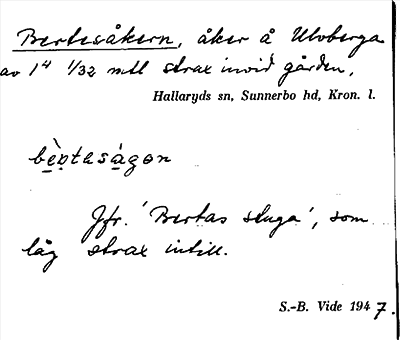 Bertesåkern, åker å Ulvberga
av 1⁴ 1/32 mtl strax invid gården.
Hallaryds sn, Sunnerbo hd, Kron. l.
Jfr. 'Bertas stuga', som
låg strax intill.
S.-B. Vide 1947.